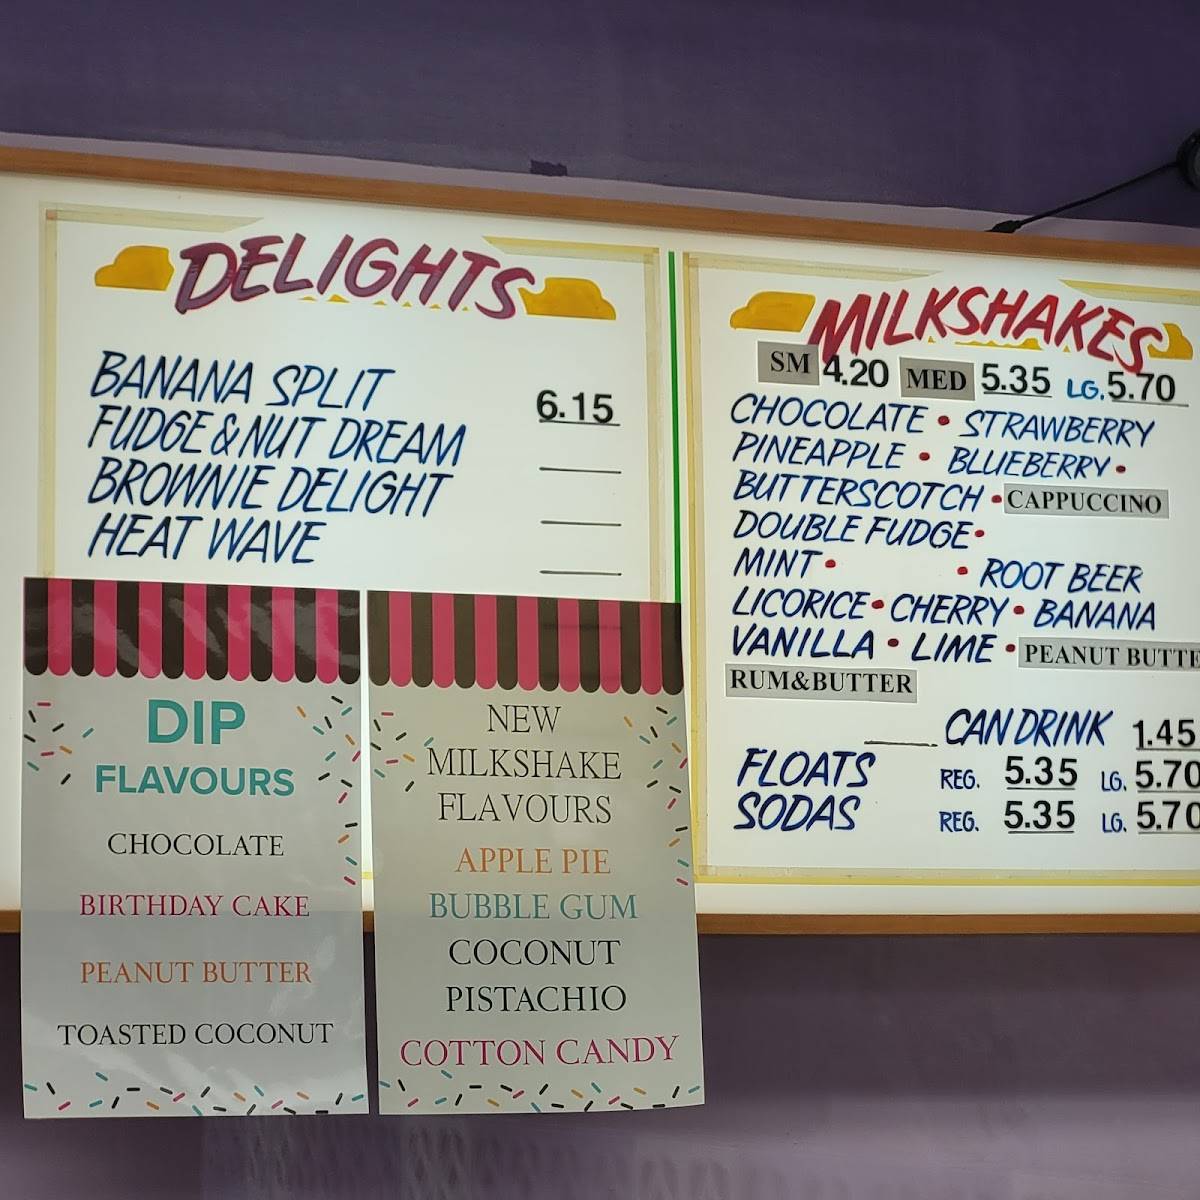 DELIGHTS
BANANA SPLIT 6.15
FUDGE & NUT DREAM
BROWNIE DELIGHT
HEAT WAVE
DIP
FLAVOURS
CHOCOLATE
BIRTHDAY CAKE
PEANUT BUTTER
TOASTED COCONUT
NEW
MILKSHAKE
FLAVOURS
APPLE PIE
BUBBLE GUM
COCONUT
PISTACHIO
COTTON CANDY
MILKSHAKES
SM 4.20 MED 5.35 LG. 5.70
CHOCOLATE • STRAWBERRY
PINEAPPLE • BLUEBERRY •
BUTTERSCOTCH • CAPPUCCINO
DOUBLE FUDGE •
MINT • • ROOT BEER
LICORICE • CHERRY • BANANA
VANILLA • LIME • PEANUT BUTTE
RUM&BUTTER
CAN DRINK 1.45
FLOATS REG. 5.35 LG. 5.70
SODAS REG. 5.35 LG. 5.70